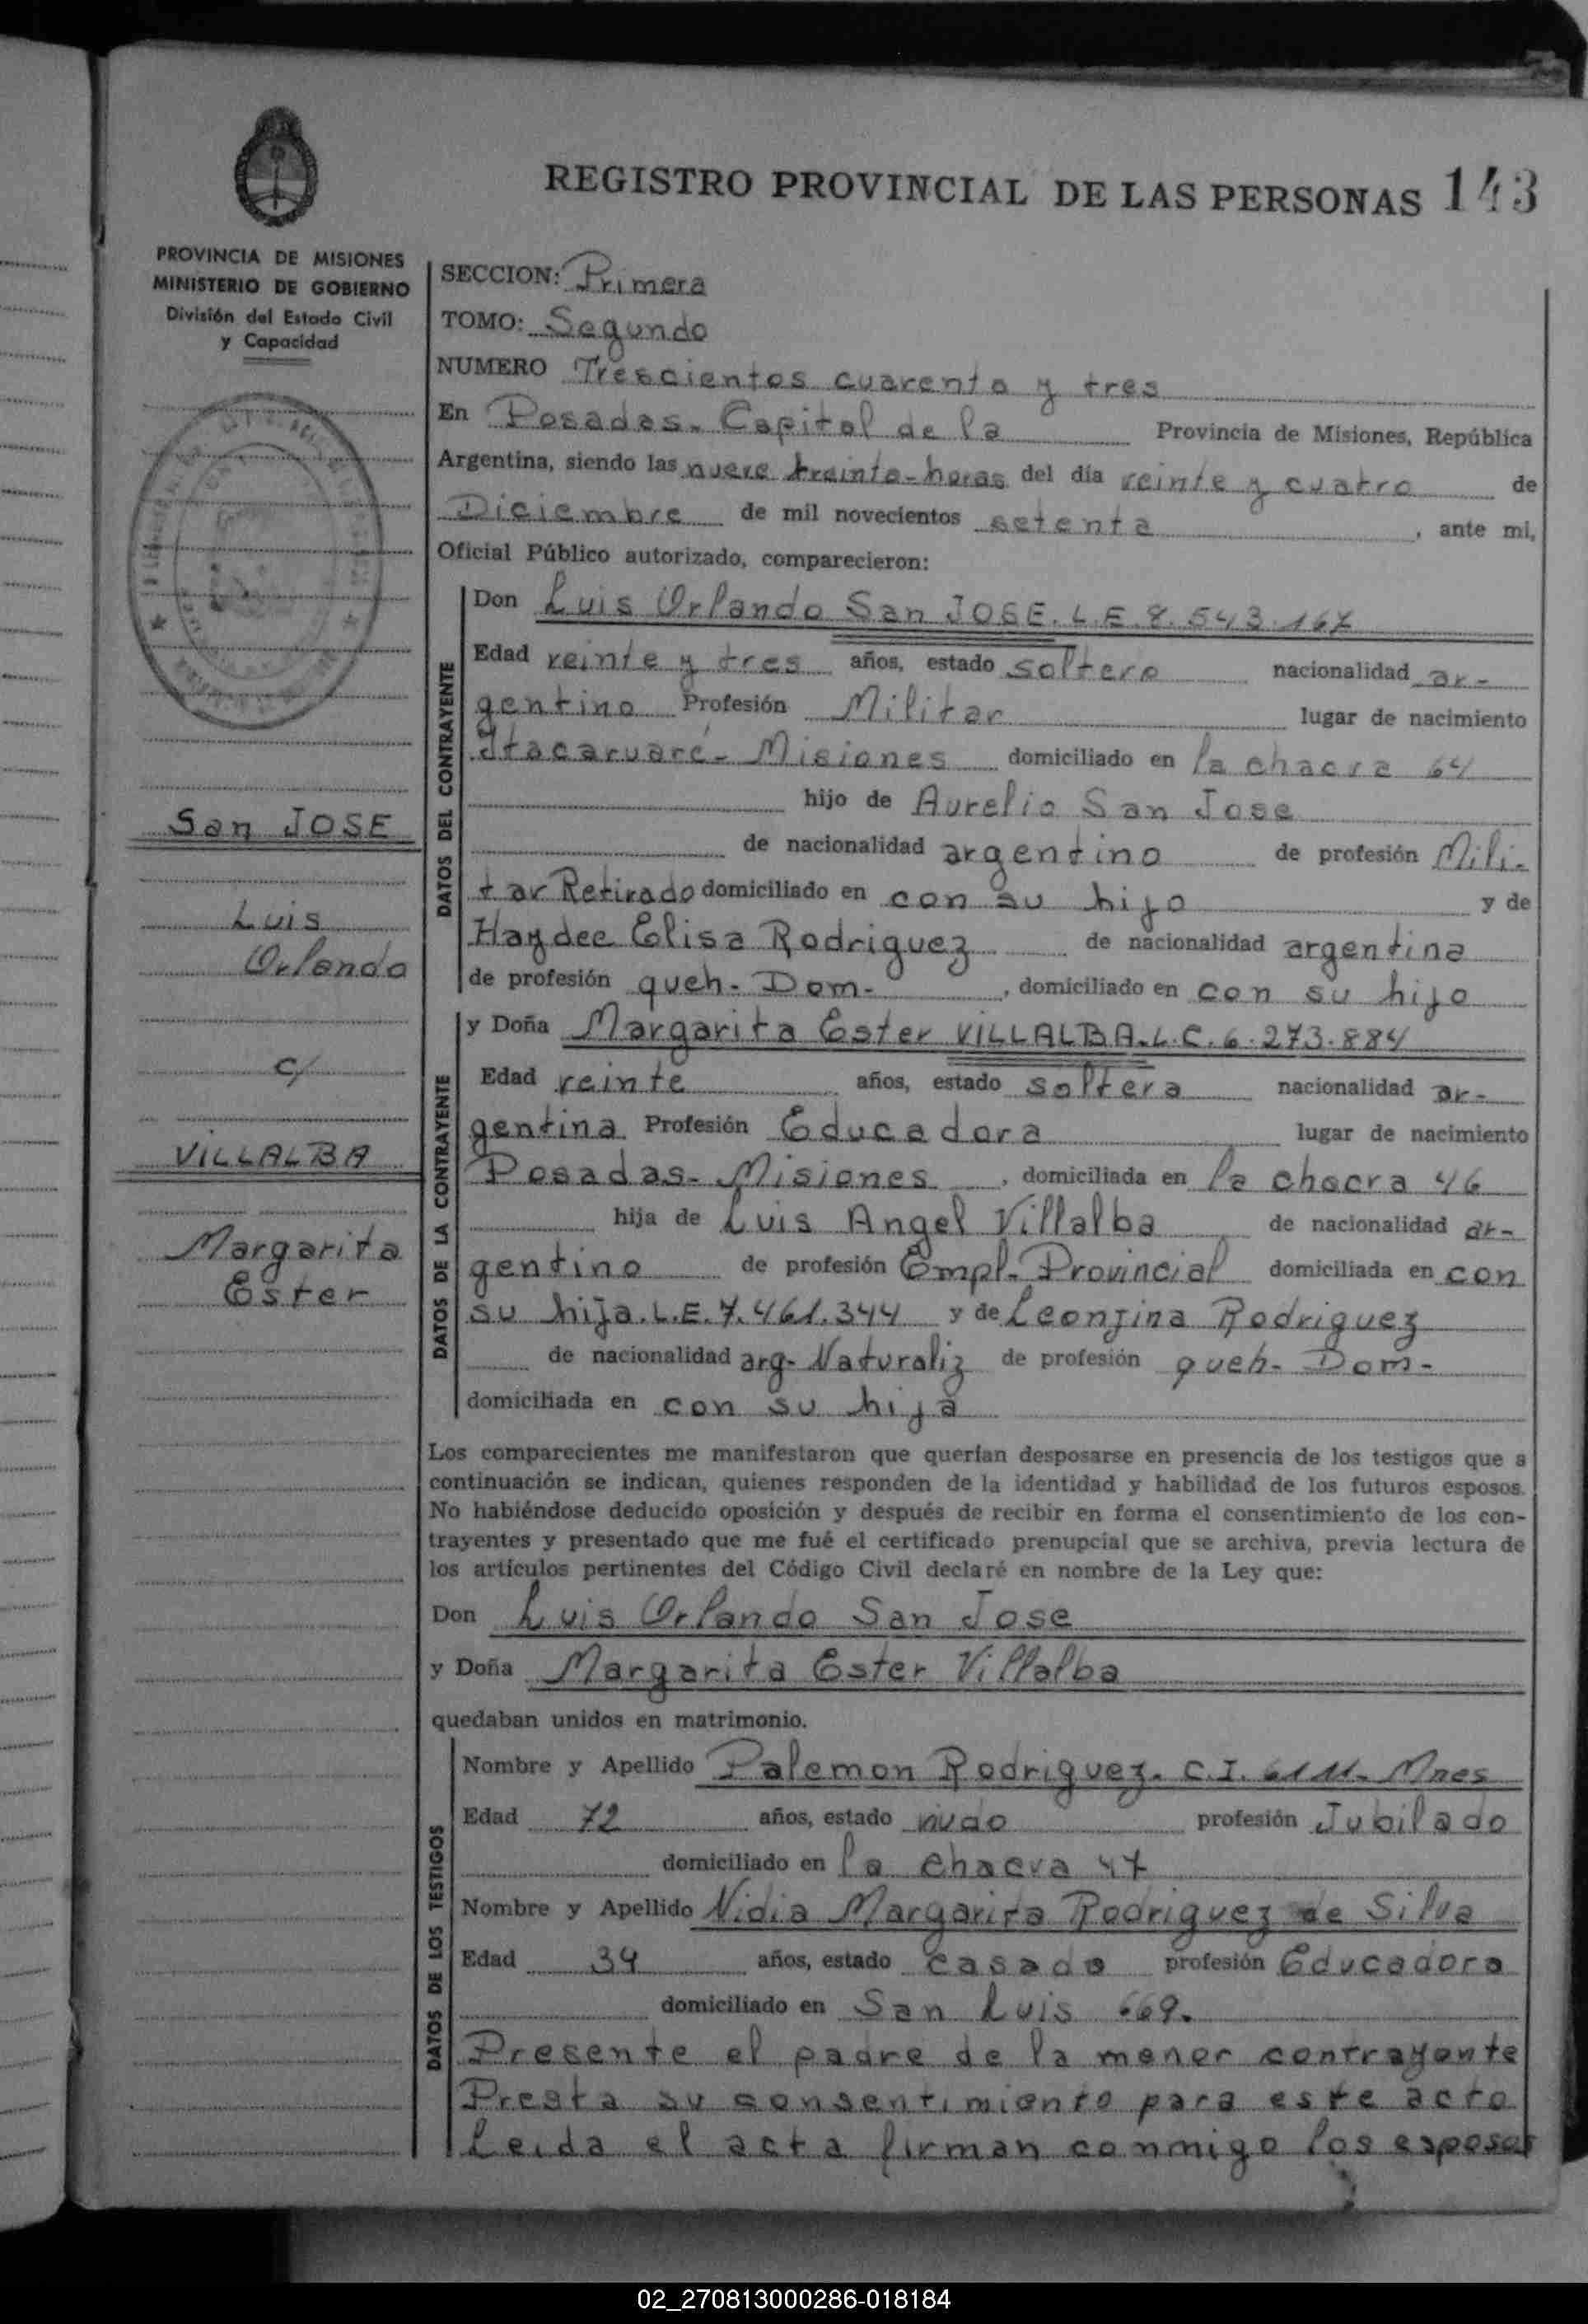 REGISTRO PROVINCIAL DE LAS PERSONAS 143
PROVINCIA DE MISIONES
MINISTERIO DE GOBIERNO
División del Estado Civil
y Capacidad
SECCION: Primera
TOMO: Segundo
NUMERO Trescientos cuarenta y tres
En Posadas. Capital de la Provincia de Misiones, República
Argentina, siendo las nueve treinta-horas del día veinte y cuatro de
Diciembre de mil novecientos setenta, ante mi,
Oficial Público autorizado, comparecieron:
DATOS DEL CONTRAYENTE
Don Luis Orlando San JOSE. L.E. 8.543.167
Edad veinte y tres años, estado soltero nacionalidad ar-
gentino Profesión Militar lugar de nacimiento
Itacaruaré- Misiones domiciliado en la chacra 64
hijo de Aurelio San Jose
de nacionalidad argentino de profesión Mili-
tar Retirado domiciliado en con su hijo y de
Haydee Elisa Rodriguez de nacionalidad argentina
de profesión queh- Dom-, domiciliado en con su hijo
San JOSE
Luis
Orlando
c/
VILLALBA
Margarita
Ester
DATOS DE LA CONTRAYENTE
y Doña Margarita Ester VILLALBA. L.C. 6.273.884
Edad veinte años, estado soltera nacionalidad ar-
gentina Profesión Educadora lugar de nacimiento
Posadas- Misiones, domiciliada en la chacra 46
hija de Luis Angel Villalba de nacionalidad ar-
gentino de profesión Empl- Provincial domiciliada en con
su hija. L.E. 7.461.344 y de Leonjina Rodriguez
de nacionalidad arg- Naturaliz de profesión queh- Dom-
domiciliada en con su hija
Los comparecientes me manifestaron que querían desposarse en presencia de los testigos que a
continuación se indican, quienes responden de la identidad y habilidad de los futuros esposos.
No habiéndose deducido oposición y después de recibir en forma el consentimiento de los con-
trayentes y presentado que me fué el certificado prenupcial que se archiva, previa lectura de
los artículos pertinentes del Código Civil declaré en nombre de la Ley que:
Don Luis Orlando San Jose
y Doña Margarita Ester Villalba
quedaban unidos en matrimonio.
DATOS DE LOS TESTIGOS
Nombre y Apellido Palemon Rodriguez. C.I. 6111- Mnes
Edad 72 años, estado viudo profesión Jubilado
domiciliado en la chacra 47
Nombre y Apellido Nidia Margarita Rodriguez de Silva
Edad 34 años, estado casada profesión Educadora
domiciliado en San Luis 669.
Presente el padre de la menor contrayente
Presta su consentimiento para este acto
Leida el acta firman conmigo los esposos
02_270813000286-018184